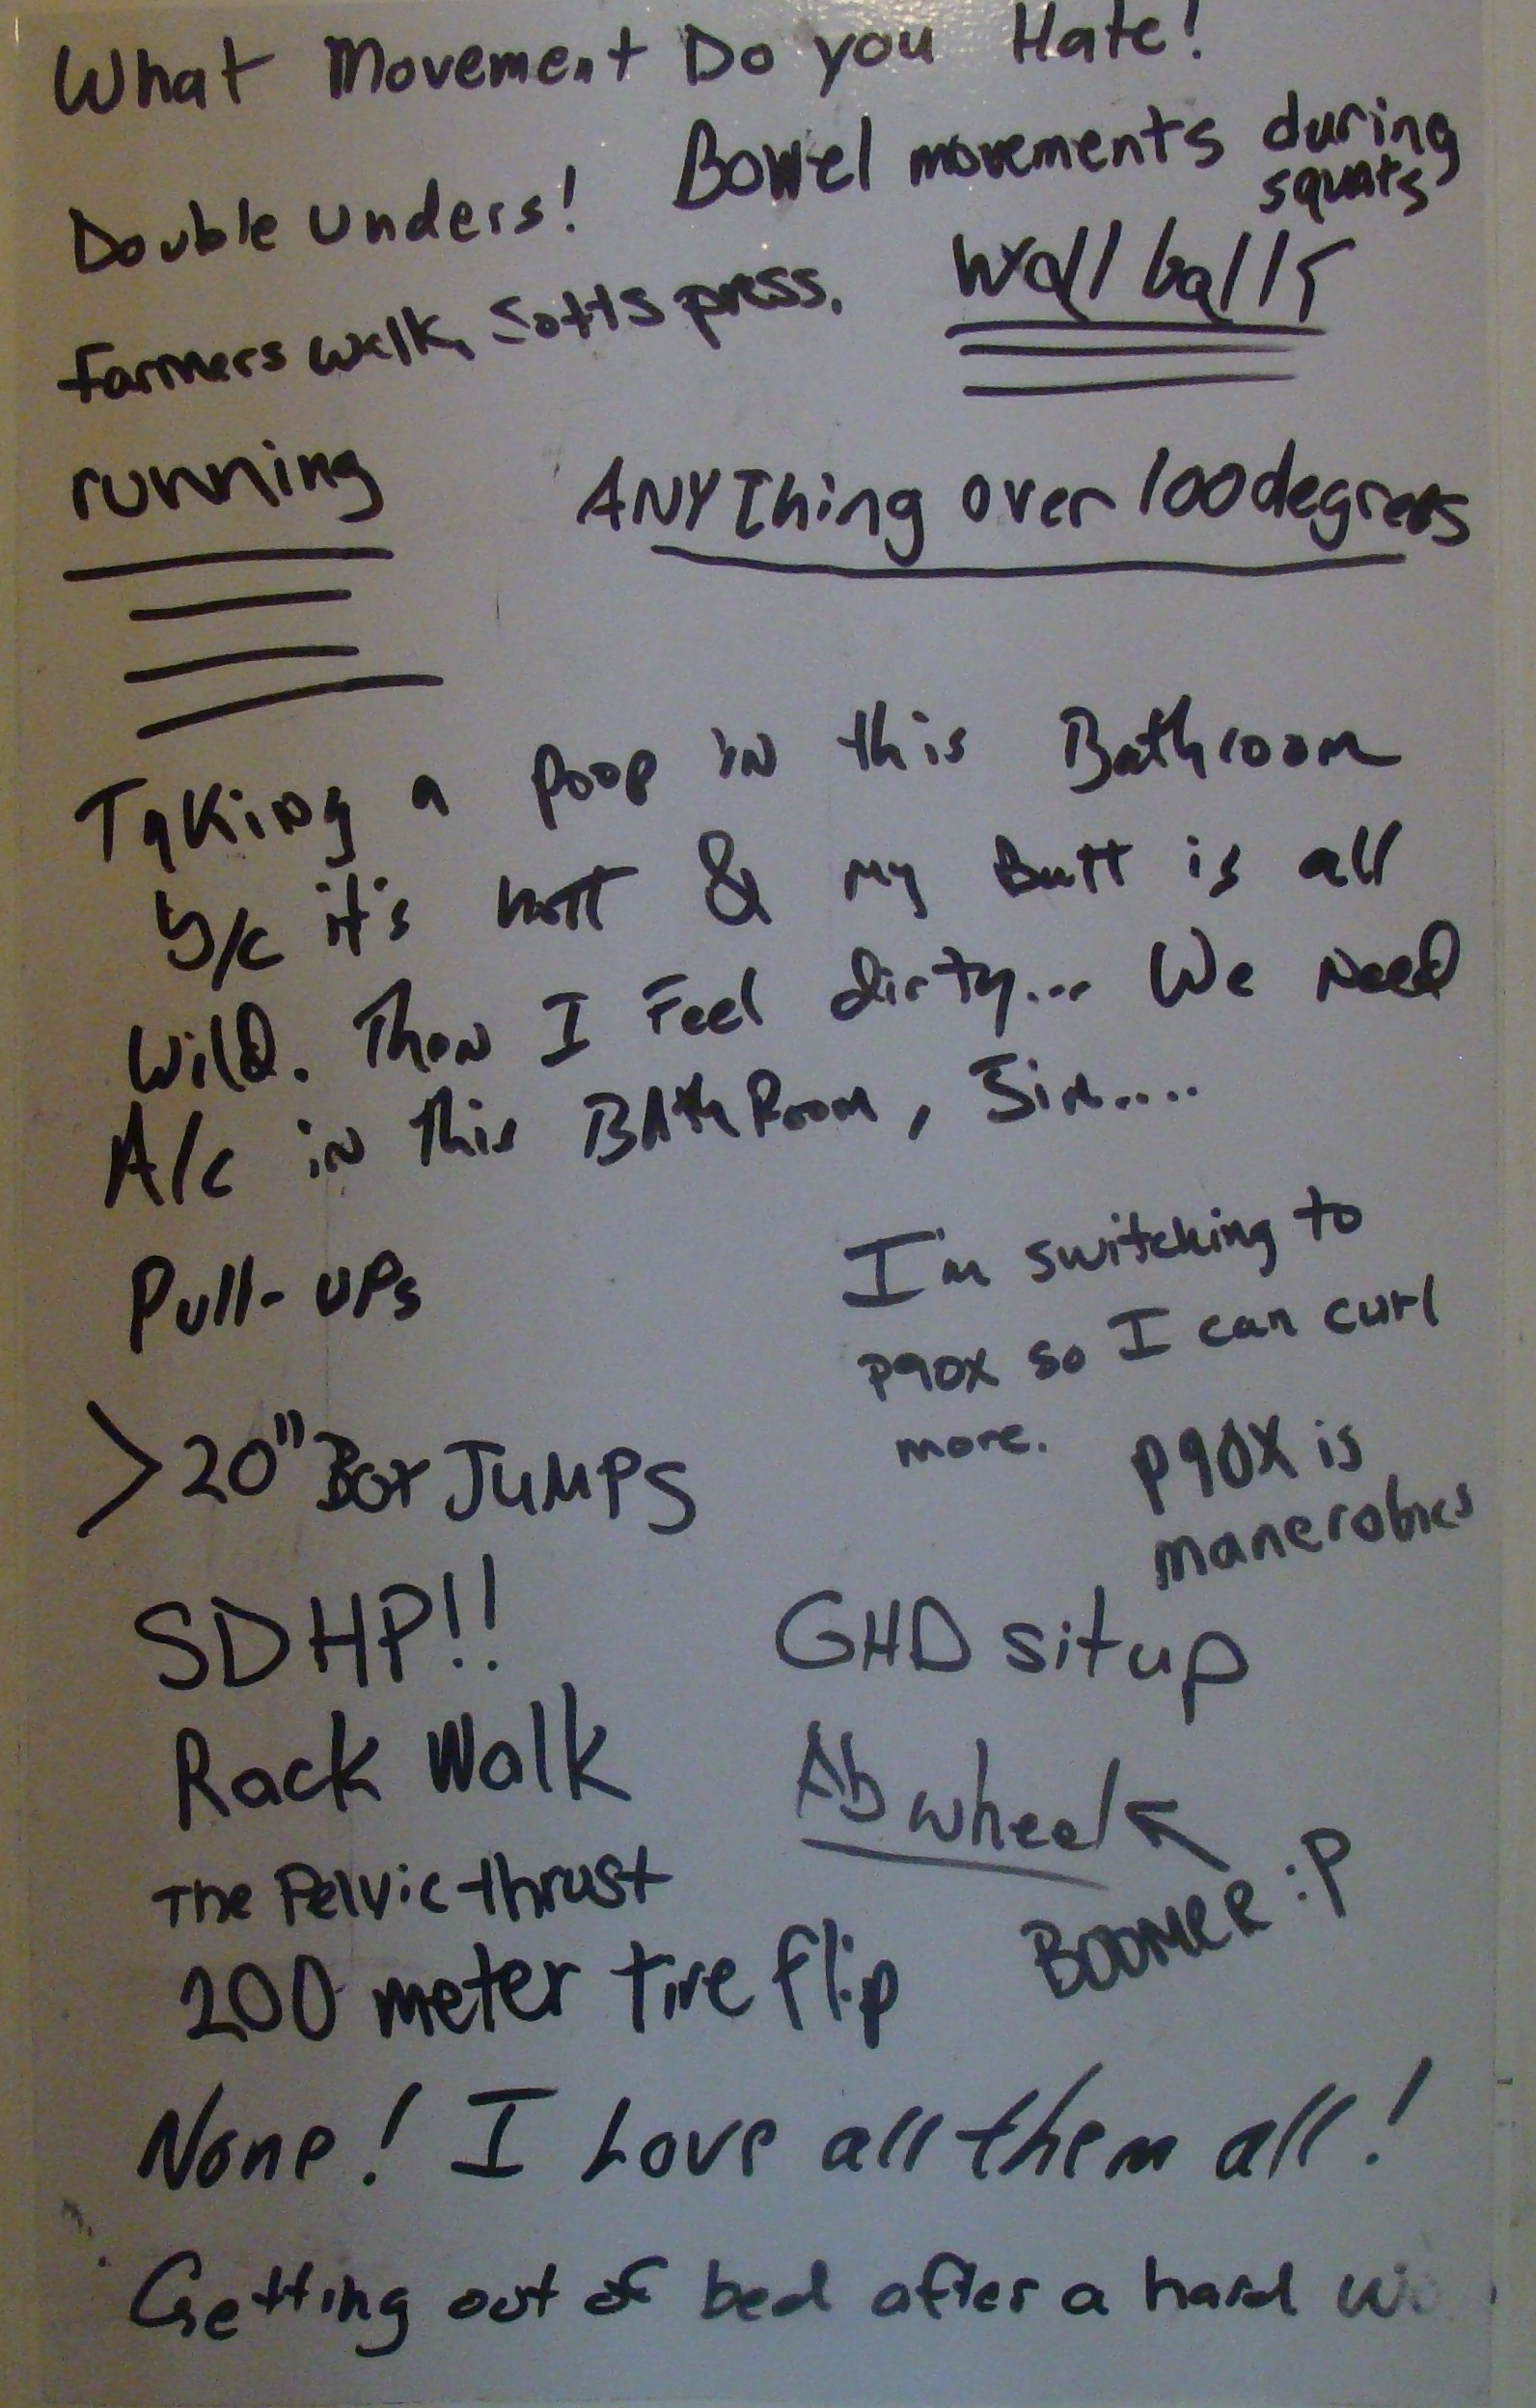 What Movement Do you Hate!
Bowel movements during
squats
Double unders!
Wall balls
farmers walk, Sotts press.
running
ANYThing over 100degrees
Taking a Poop in this Bathroom
b/c it's hott & my Butt is all
Wild. Then I Feel dirty... We Need
A/c in this BAthRoom, Jim....
Pull-UPs
I'm switching to
P90X so I can curl
more.
P90X is
manerobics
>20" Box JUMPS
SDHP!!
GHD situp
Rack Walk
Ab wheel
BOOMER :P
The Pelvic thrust
200 meter tire flip
None! I Love all them all!
Getting out of bed after a hard